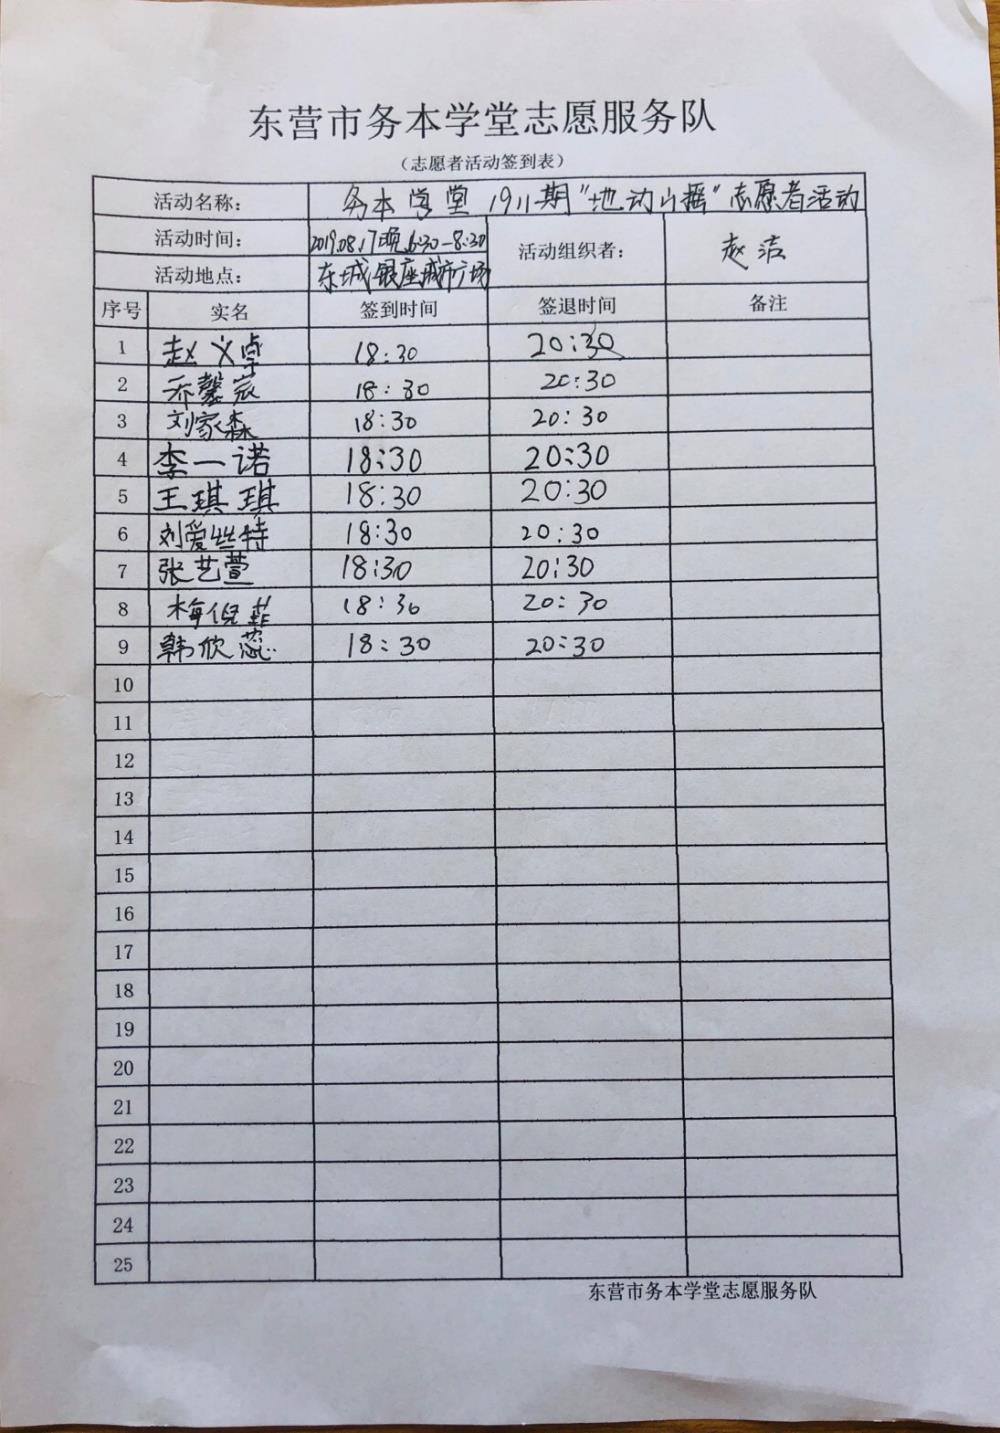 东营市务本学堂志愿服务队
（志愿者活动签到表）
活动名称： 务本学堂 1911期“地动山摇”志愿者活动
活动时间： 2019.08.17晚6:30-8:30 活动组织者： 赵洁
活动地点： 东城银座城市广场
序号 实名 签到时间 签退时间 备注
1 赵义卓 18:30 20:30
2 乔馨 18:30 20:30
3 刘家森 18:30 20:30
4 李一诺 18:30 20:30
5 王琪琪 18:30 20:30
6 刘爱丝特 18:30 20:30
7 张艺萱 18:30 20:30
8 梅倪菲 18:30 20:30
9 韩欣蕊 18:30 20:30
10
11
12
13
14
15
16
17
18
19
20
21
22
23
24
25
东营市务本学堂志愿服务队